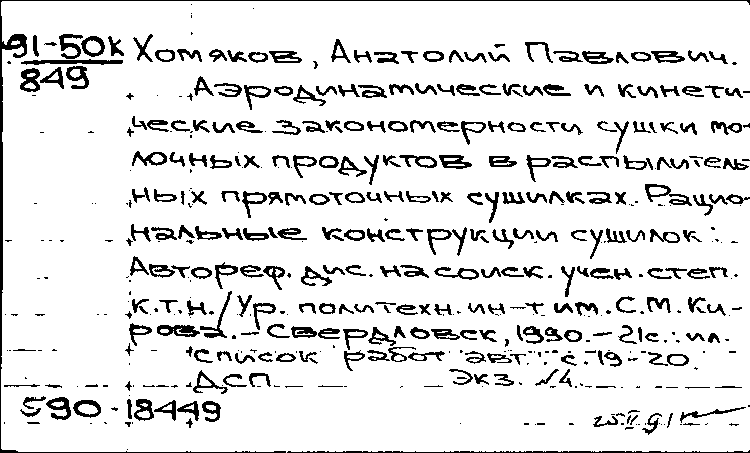 91-50к Хомяков, Анатолий Павлович.
849
Аэродинамические и кинети-
ческие закономерности сушки мо-
лочных продуктов в распылитель-
ных прямоточных сушилках. Рацио-
нальные конструкции сушилок:
Автореф. дис. на соиск. учен. степ.
к.т.н./Ур. политехн. ин-т им. С.М. Ки-
рова. – Свердловск, 1990. – 21с.: ил.
список работ авт.: с. 19-20.
ДСП Экз. №4
590-18449
25.II.91